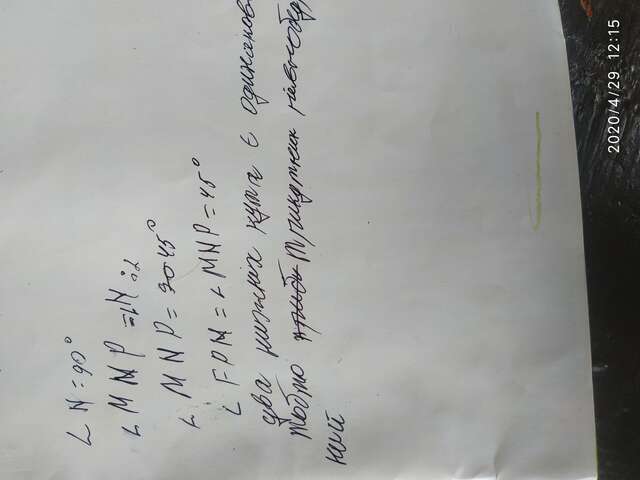 ∠ N = 90°
∠ M N P = ∠N : 2
∠ M N P = 30 45°
∠ F P M = ∠ M N P = 45°
два нижних кута є одинакові
тобто трикутник рівнобед
ний
2020/4/29 12:15